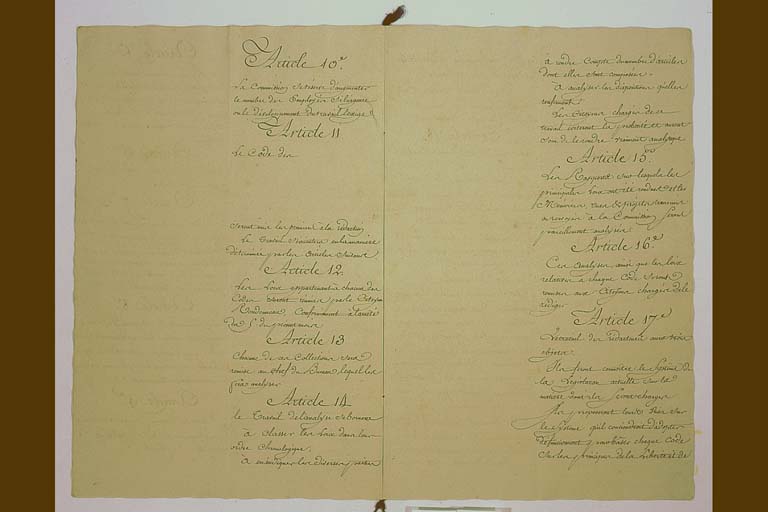 Article 10e.
La Commission se réserve d'augmenter
le nombre des Employés si l'urgence
ou le développement du travail l'exige
Article 11
Le Code des
seront mis les premiers à la rédaction
Le Travail s'exécutera en la manière
déterminée par les articles suivants
Article 12.
Les Loix appartenant à chacun des
Codes seront remises par le Citoyen
Conformément à l'arrêté
du 5 du présent mois
Article 13
Chacune de ces Collections sera
remise au chef du Bureau lequel les
fera analyser
Article 14
Le Travail de l'analyse se bornera
à classer les Loix dans leur
ordre chronologique.
à en indiquer les diverses parties
à rendre Compte du nombre d'articles
dont elles sont composées.
à analyser les dispositions qu'elles
renferment.
Les Citoyens chargés de ce
travail et auront
soin de le rendre vraiment analytique
Article 15e.
Les Rapports sur lesquels les
principales Loix ont été rendues et les
Mémoires, vues & projets
à la Commission seront
pareillement analysés
Article 16e.
Ces analyses ainsi que les Loix
relatives à chaque Code seront
remises aux Citoyens chargés de le
rédiger
Article 17e
Le travail des rédacteurs aura trois
objets.
Ils feront connaître le Système de
la Législation actuelle sur la
matière dont ils seront chargés
Ils proposeront leurs vues sur
le Système qu'il conviendrait d'adopter
définitivement pour baser chaque Code
sur les principes de la Liberté et de